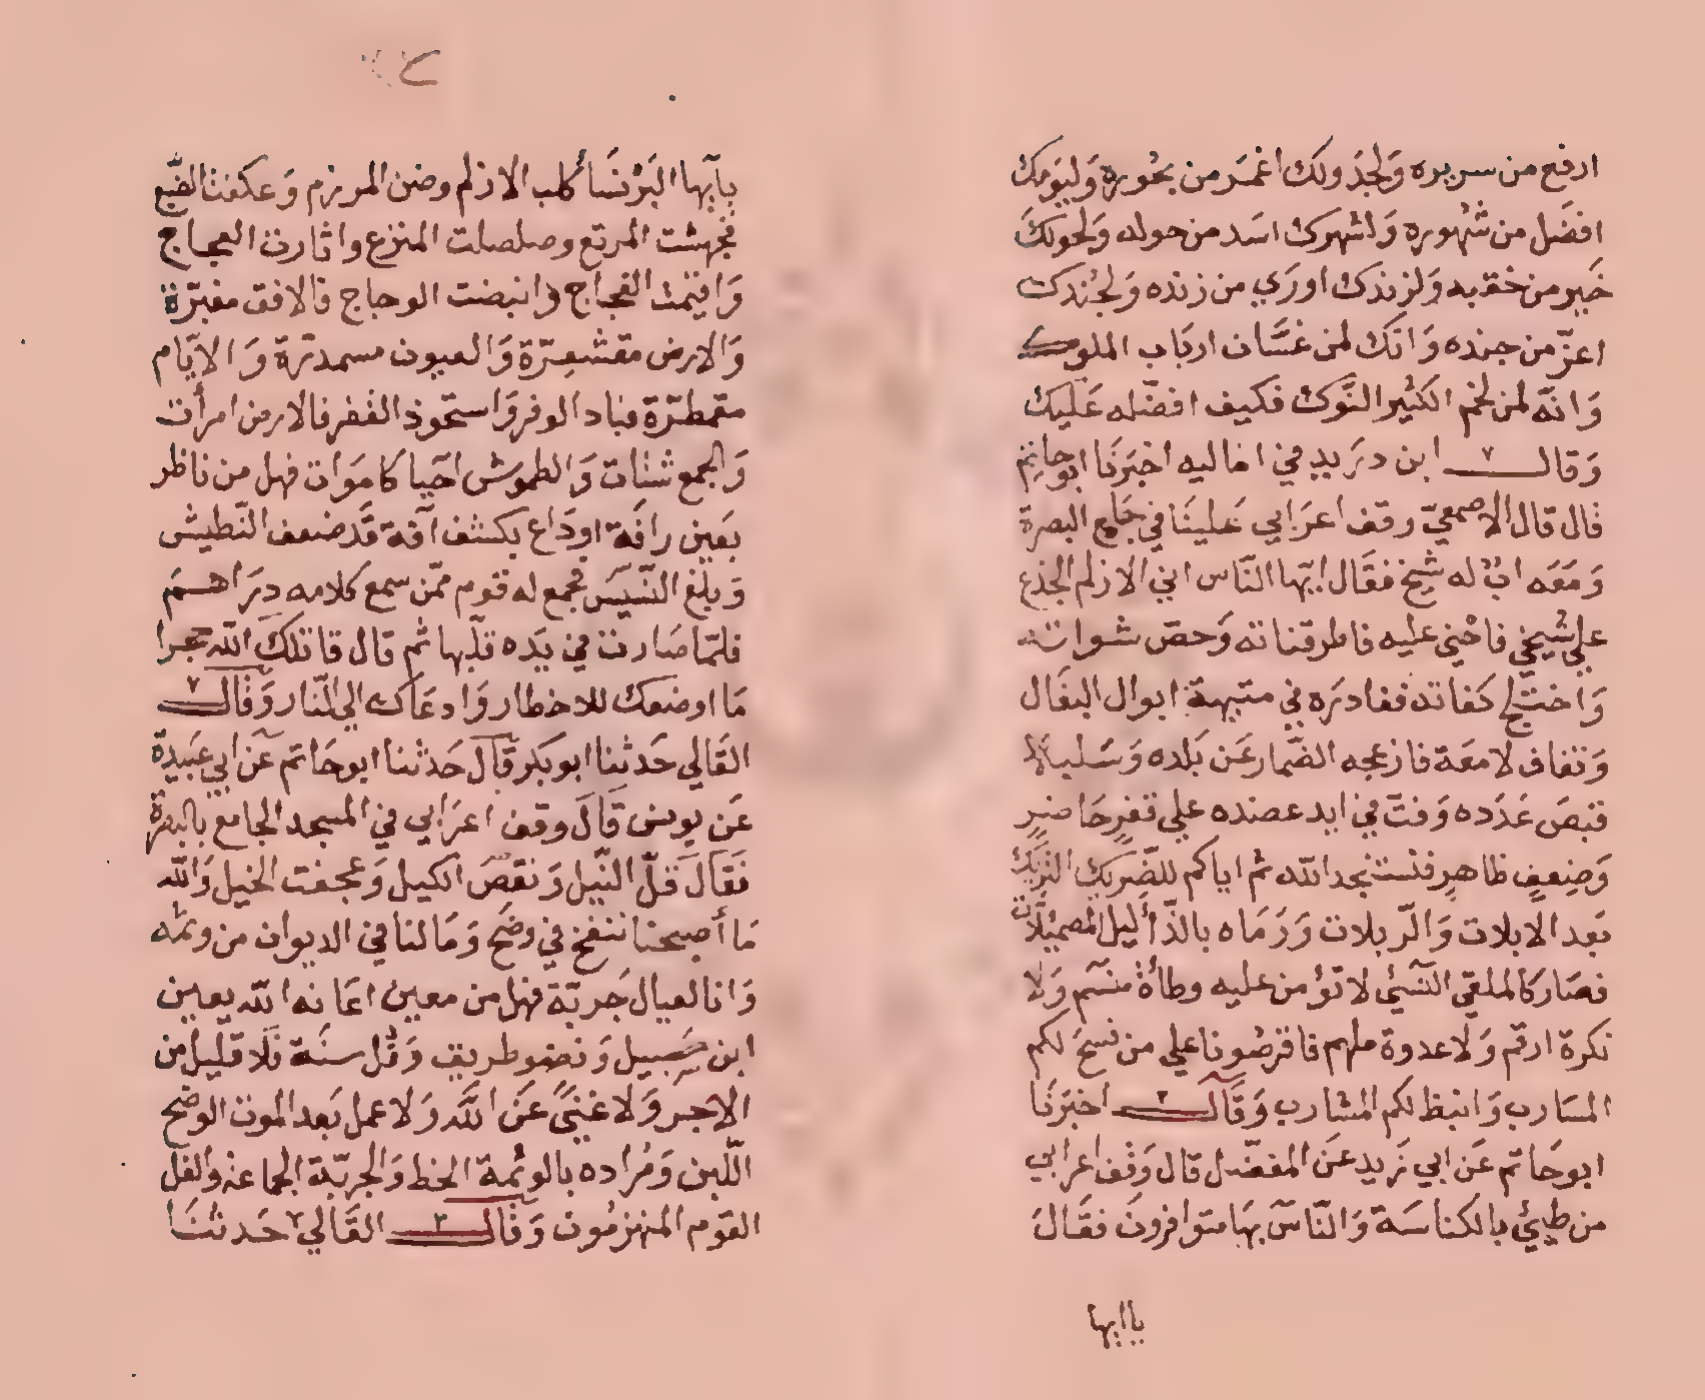 ارفع من سريره وَلجَدولك اغمَر من بحُوره وَليَومك
افضَل من شُهُوره وَلشهوك اسَد من حوله وَلحولكَ
خَير من حقبه وَلزندك اورَي من زنده وَلجُندك
اعزّ من جنده وَانّك لمن غسَّان ارباب الملوك
وَانّه لمن لخم الكثير النَّوك فكيف افضّله عَليك
وَقال ابن درَيد في اماليه اخبرَنا ابو حاتم
قال قال الاصمعيّ وقف اعرَابي عَلينَا في جَامع البصرة
وَمَعَه ابنٌ له شيخ فقَال ايّها النّاس اني الازلم الجذع
علي شيخي فاحني عليه فاطر قناته وَحصّ شواته
وَاختلج كفاته فغادرَه في متيهة ابوال البغَال
وَتغاف لامعَة فازعجه الضّمار عَن بَلده وَسَلبه
فنبصَ عَدَده وَفتّ في ايد عضده علي فقرٍ حَاضرٍ
وَضعفٍ ظاهرٍ فنستنجد الله ثم اياكم للضّريك النزيك
بَعد الابلات وَالرّبلات وَرَمَاه بالذّأليل المصمئلّات
فصَار كالملقي النسّئ لا تؤمن عليه وطأة منسَم وَلا
نكرة ارقم وَلا عدوة ملهم فاقرضُونا علي من نسخَ لكم
المسَارب وَانبط لكم المشارب وَقَال اخبرَنَا
ابو حَاتم عَن ابي زَيد عَن المفضّل قال وَقف اعرابي
من طيئ بالكناسَة وَالنّاسَ بهَا متوافرونَ فقَالَ
يا ايها
يآيّها البَرْنسَا كلب الازلم وضن المرزم وَعكفتنا الضّبع
فجهشت المرتع وصلصلت المنزع واثارت العجاج
وَاقتمت الفجاج وانبضت الوحاج فالافق مغبرّة
وَالارض مقشعِرّة وَالعيون مسمدرّة وَالايّام
مقمطرّة فباد الوفر وَاستحوذ الفقر فالارض امرأت
وَالجمع شتات وَالطموش احَيا كامَوات فهل من ناظر
بعَين رافَة اودَاع بكشف آفة قَد ضعف النّطيش
وَبلغ النّسيسَ فجمع له قوم ممّن سمع كلامه درَاهمَ
فلمّا صَارت في يَده قلّبها ثم قال قاتلك الله حجرا
مَا اوضعك للاخطار وَادعَاك الي النّار وَقال
القَالي حَدثنا ابو بكر قَال حَدثنا ابو حَاتم عَن ابي عَبَيدة
عَن يونس قَالَ وقف اعرَابي في المسجد الجامع بالبصرة
فَقَالَ قلّ النّيل وَنقصَ الكيل وَعجفت الخيل وَالله
مَا أصبحنا ننفخ في وضَح وَمَا لنا في الديوان من وشمه
وَانا لعيال جَربّة فهل من معين اعَانه الله يعين
ابن سَبيل وَنضو طريق وَفُل سنَة فَلا قليل من
الاجر وَلا غنىً عَن اللَّه وَلا عمل بَعد الموت الوضح
اللّبن وَمُراده بالوشمة الحظ وَالجربّة الجماعة والفل
القوم المنهزمُون وَقال القَالي حَدثنَا